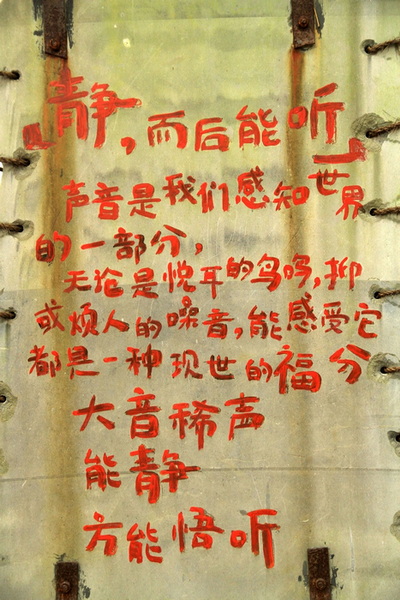 「静，而后能听」
声音是我们感知世界
的一部分，
无论是悦耳的鸟鸣，抑
或烦人的噪音，能感受它
都是一种现世的福分
大音稀声
能静
方能悟听